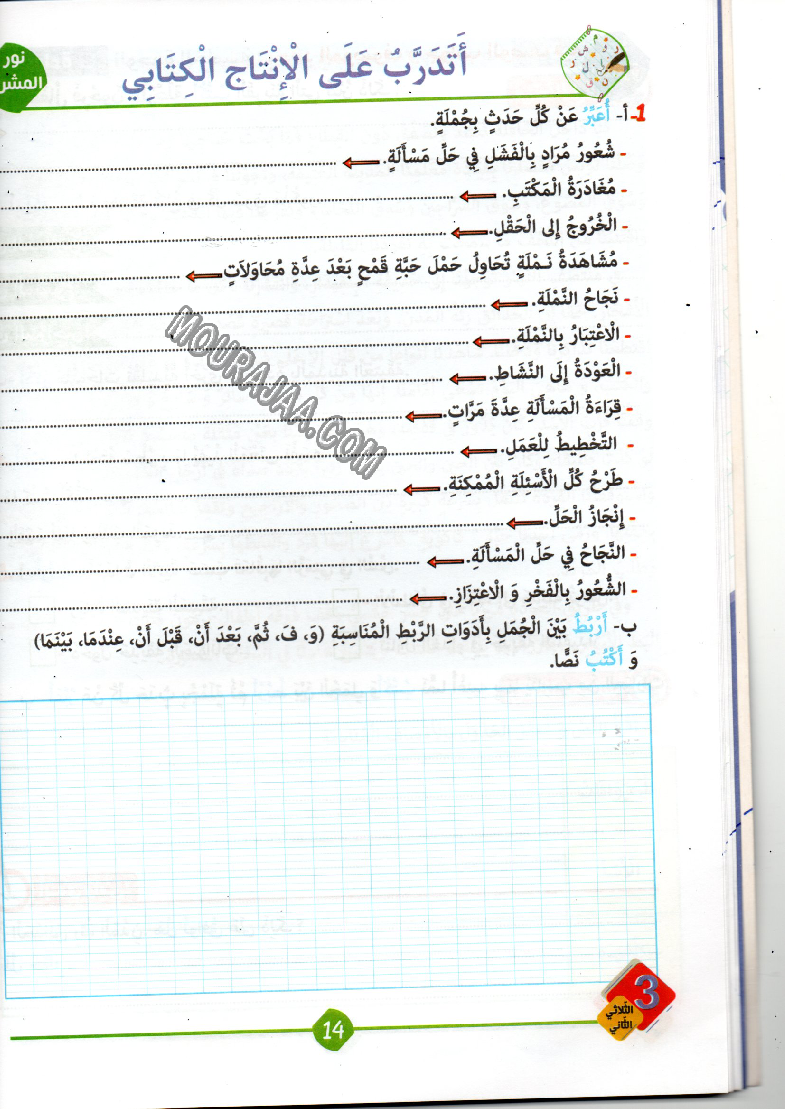 نور
المشر
أَتَدَرَّبُ عَلَى الْإِنْتَاجِ الْكِتَابِي
1- أ- أُعَبِّرُ عَنْ كُلِّ حَدَثٍ بِجُمْلَةٍ.
- شُعُورُ مُرَادٍ بِالْفَشَلِ فِي حَلِّ مَسْأَلَةٍ.
- مُغَادَرَةُ الْمَكْتَبِ.
- الْخُرُوجُ إِلى الْحَقْلِ.
- مُشَاهَدَةُ نَمْلَةٍ تُحَاوِلُ حَمْلَ حَبَّةِ قَمْحٍ بَعْدَ عِدَّةِ مُحَاوَلَاتٍ
- نَجَاحُ النَّمْلَةِ.
- الْاعْتِبَارُ بِالنَّمْلَةِ.
- الْعَوْدَةُ إِلَى النَّشَاطِ.
- قِرَاءَةُ الْمَسْأَلَةِ عِدَّةَ مَرَّاتٍ.
- التَّخْطِيطُ لِلْعَمَلِ.
- طَرْحُ كُلِّ الْأَسْئِلَةِ الْمُمْكِنَةِ.
- إِنْجَازُ الْحَلِّ.
- النَّجَاحُ فِي حَلِّ الْمَسْأَلَةِ.
- الشُّعُورُ بِالْفَخْرِ وَ الْاعْتِزَازِ.
ب- أَرْبُطُ بَيْنَ الْجُمَلِ بِأَدَوَاتِ الرَّبْطِ الْمُنَاسِبَةِ (وَ، فَ، ثُمَّ، بَعْدَ أَنْ، قَبْلَ أَنْ، عِنْدَمَا، بَيْنَمَا)
وَ أَكْتُبُ نَصًّا.
MOURAJAA.COM
3
الثلاثي
الثاني
14